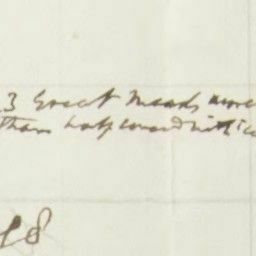 3 Great Meads more
than half coverd with ice
98